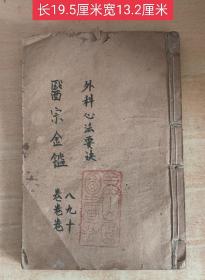 长19.5厘米宽13.2厘米
外科心法要诀
醫宗金鑑
八九十
卷卷卷